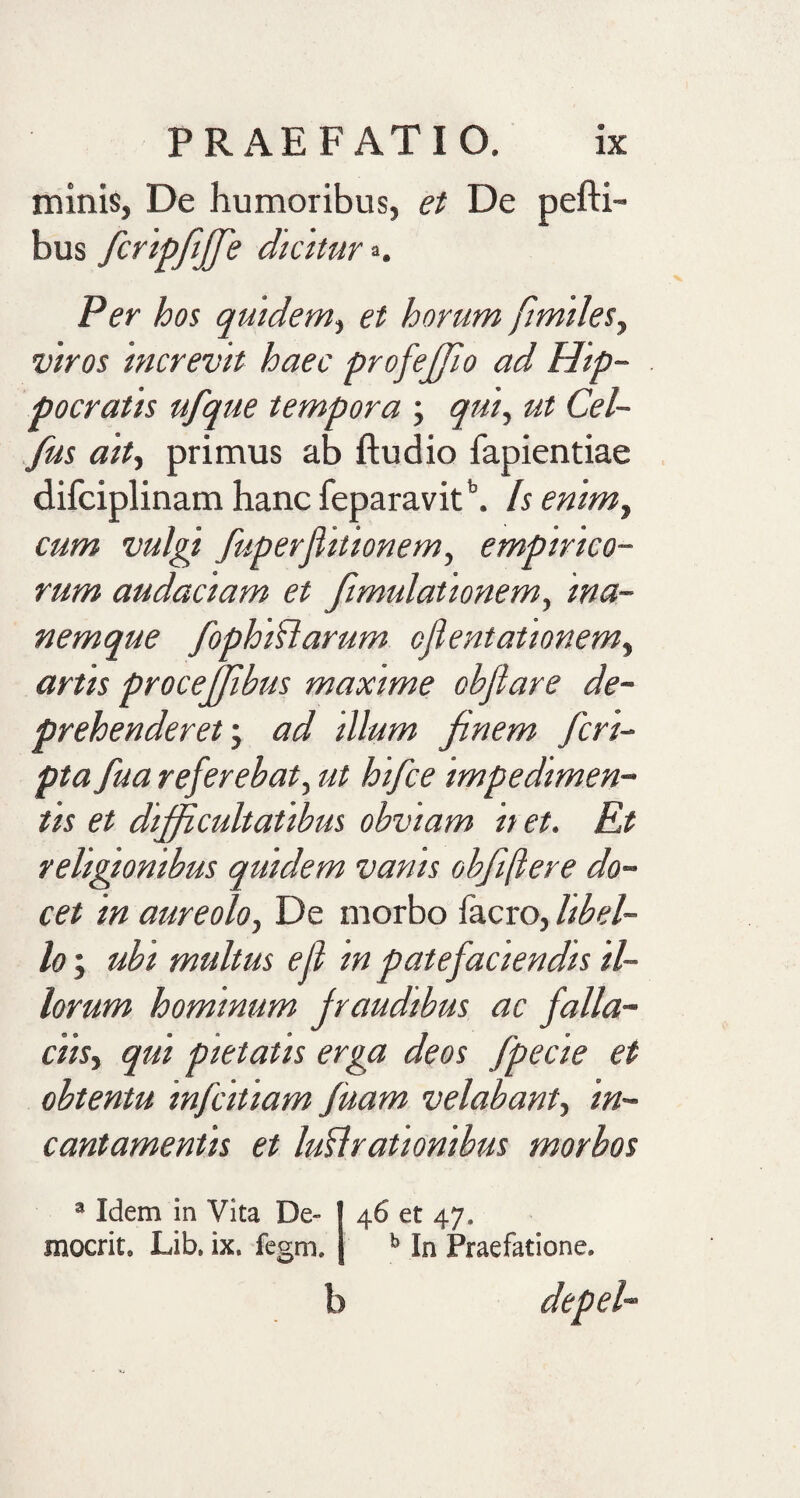 PRAEFATIO. ix
minis, De humoribus, et De peſti-
bus ſcripſiſſe dicitur ᵃ.
Per hos quidem, et horum ſimiles,
viros increvit haec profeſſio ad Hip-
pocratis uſque tempora ; qui, ut Cel-
ſus ait, primus ab ſtudio ſapientiae
diſciplinam hanc ſeparavit ᵇ. Is enim,
cum vulgi ſuperſtitionem, empirico-
rum audaciam et ſimulationem, ina-
nemque ſophiſtarum oſtentationem,
artis proceſſibus maxime obſtare de-
prehenderet ; ad illum finem ſcri-
pta ſua referebat, ut hiſce impedimen-
tis et difficultatibus obviam iret. Et
religionibus quidem vanis obſiſtere do-
cet in aureolo, De morbo ſacro, libel-
lo ; ubi multus eſt in patefaciendis il-
lorum hominum fraudibus ac falla-
ciis, qui pietatis erga deos ſpecie et
obtentu inſcitiam ſuam velabant, in-
cantamentis et luſtrationibus morbos
ᵃ Idem in Vita De-
mocrit. Lib. ix. ſegm.
46 et 47.
ᵇ In Praefatione.
b depel-